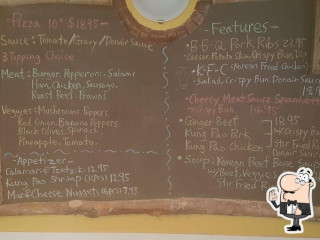 Pizza 10" $18.95
Sauce: Tomato/Gravy/Donair Sauce
3 Topping Choise
Meat: Burger, Pepperoni, Salami
Ham, Chicken, Sausage,
Roast Beef, Prawns
Veggies: Mushrooms, Peppers
Red Onion, Banana Peppers
Black Olives, Spinach,
Pineapple, Tomato.
Appetizer
Calamari & Tzatziki 12.95
Kung Pao Shrimp (12pcs) 12.95
Mac & Cheese Nuggets (6pcs) 7.95
Features
B·B·Q Pork Ribs 23.95
Caesar, Potato, Crispy Bun
K·F·C (Korean Fried Chicken)
Salad, Crispy Bun, Donair Sauce
Cheesy Meat Sauce Spaghetti
Crispy Bun 14.95
Ginger Beef
Kung Pao Pork
Kung Pao Chicken
18.95
w/Crispy Bun
Stir Fried
Donair Sauce
Soup: Korean Beef Bone Soup
w/Beef, Veggies
Stir Fried